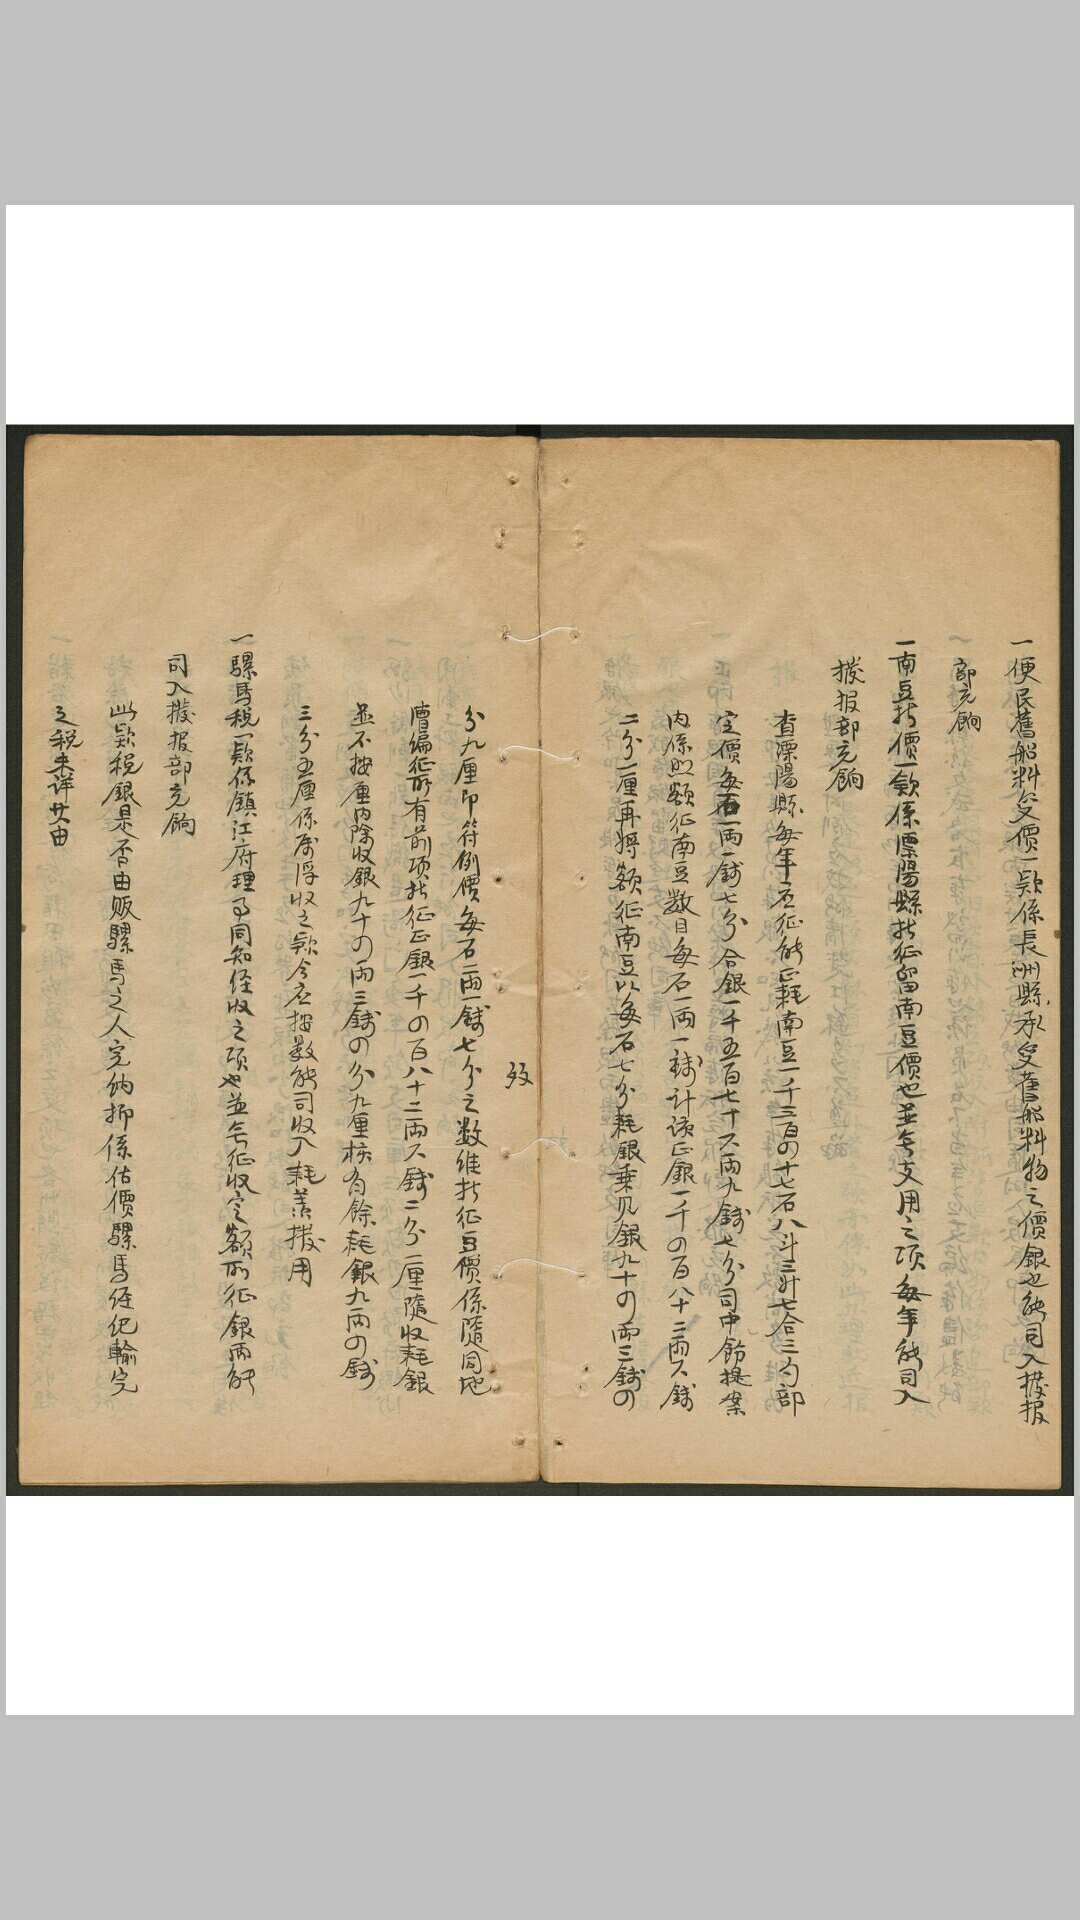 一便民舊船料變價一款係長洲縣承變舊船料物之價銀也解司入撥报
部充餉
一南豆折價一款係溧陽縣折征留南豆價也並無支用之項每年解司入
撥报部充餉
查溧陽縣每年應征解正耗南豆一千三百四十七石八斗三升七合三勺部
定價每石一兩一錢七分合銀一千五百七十六兩九錢七分司中飭提案
内係照額征南豆數目每石一兩一錢計該正銀一千四百八十二兩六錢
二分一厘再將額征南豆以每石七分耗銀乘見銀九十四兩三錢四
分九厘即符例價每石一兩一錢七分之數維折征豆價係隨同地
漕編征所有前項折征正銀一千四百八十二兩六錢二分一厘隨收耗銀
並不按厘内除收銀九十四兩三錢四分九厘核有餘耗銀九兩四錢
三分五厘係屬浮收之款今應按數解司收入耗羨撥用
一騾馬税一款係鎮江府理事同知經收之項也並無征收定額所征銀兩解
司入撥报部充餉
此款税銀是否由販騾馬之人完納抑係估價騾馬經紀輸完
之税未詳其由